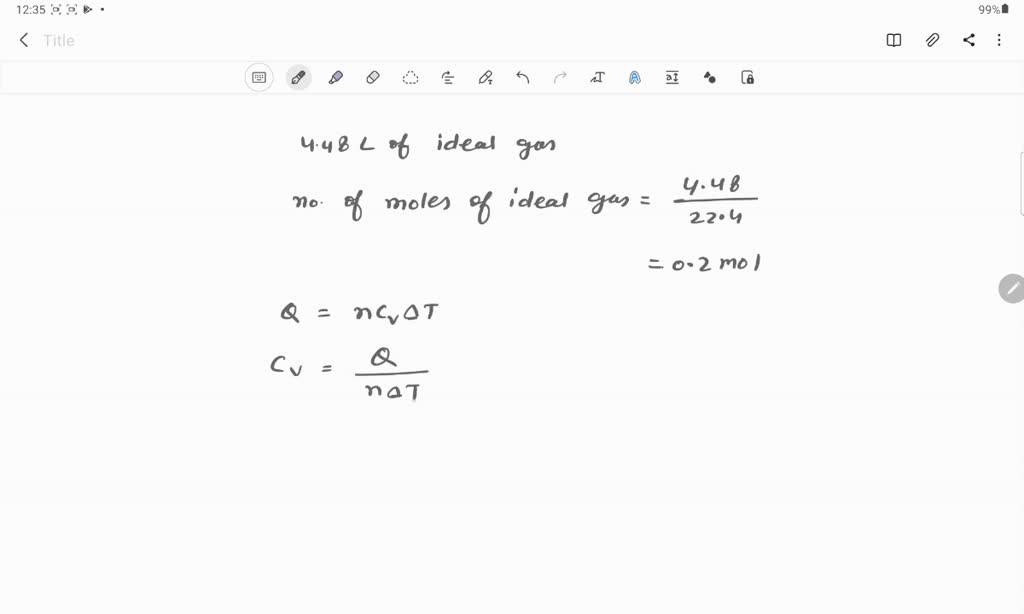 12:35
99%
Title
4.48 L of ideal gas
no. of moles of ideal gas = 4.48 / 22.4
= 0.2 mol
Q = nCvΔT
Cv = Q / nΔT